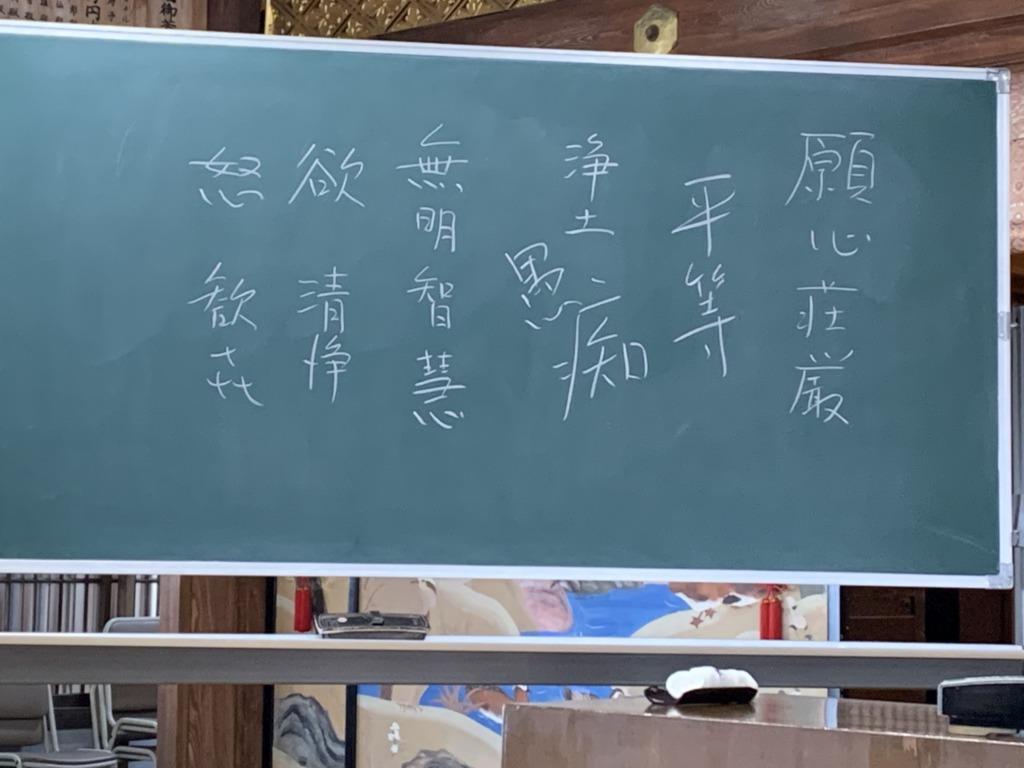 願心荘厳
平等
浄土
愚痴
無明智慧
欲 清浄
怒 歓㐂